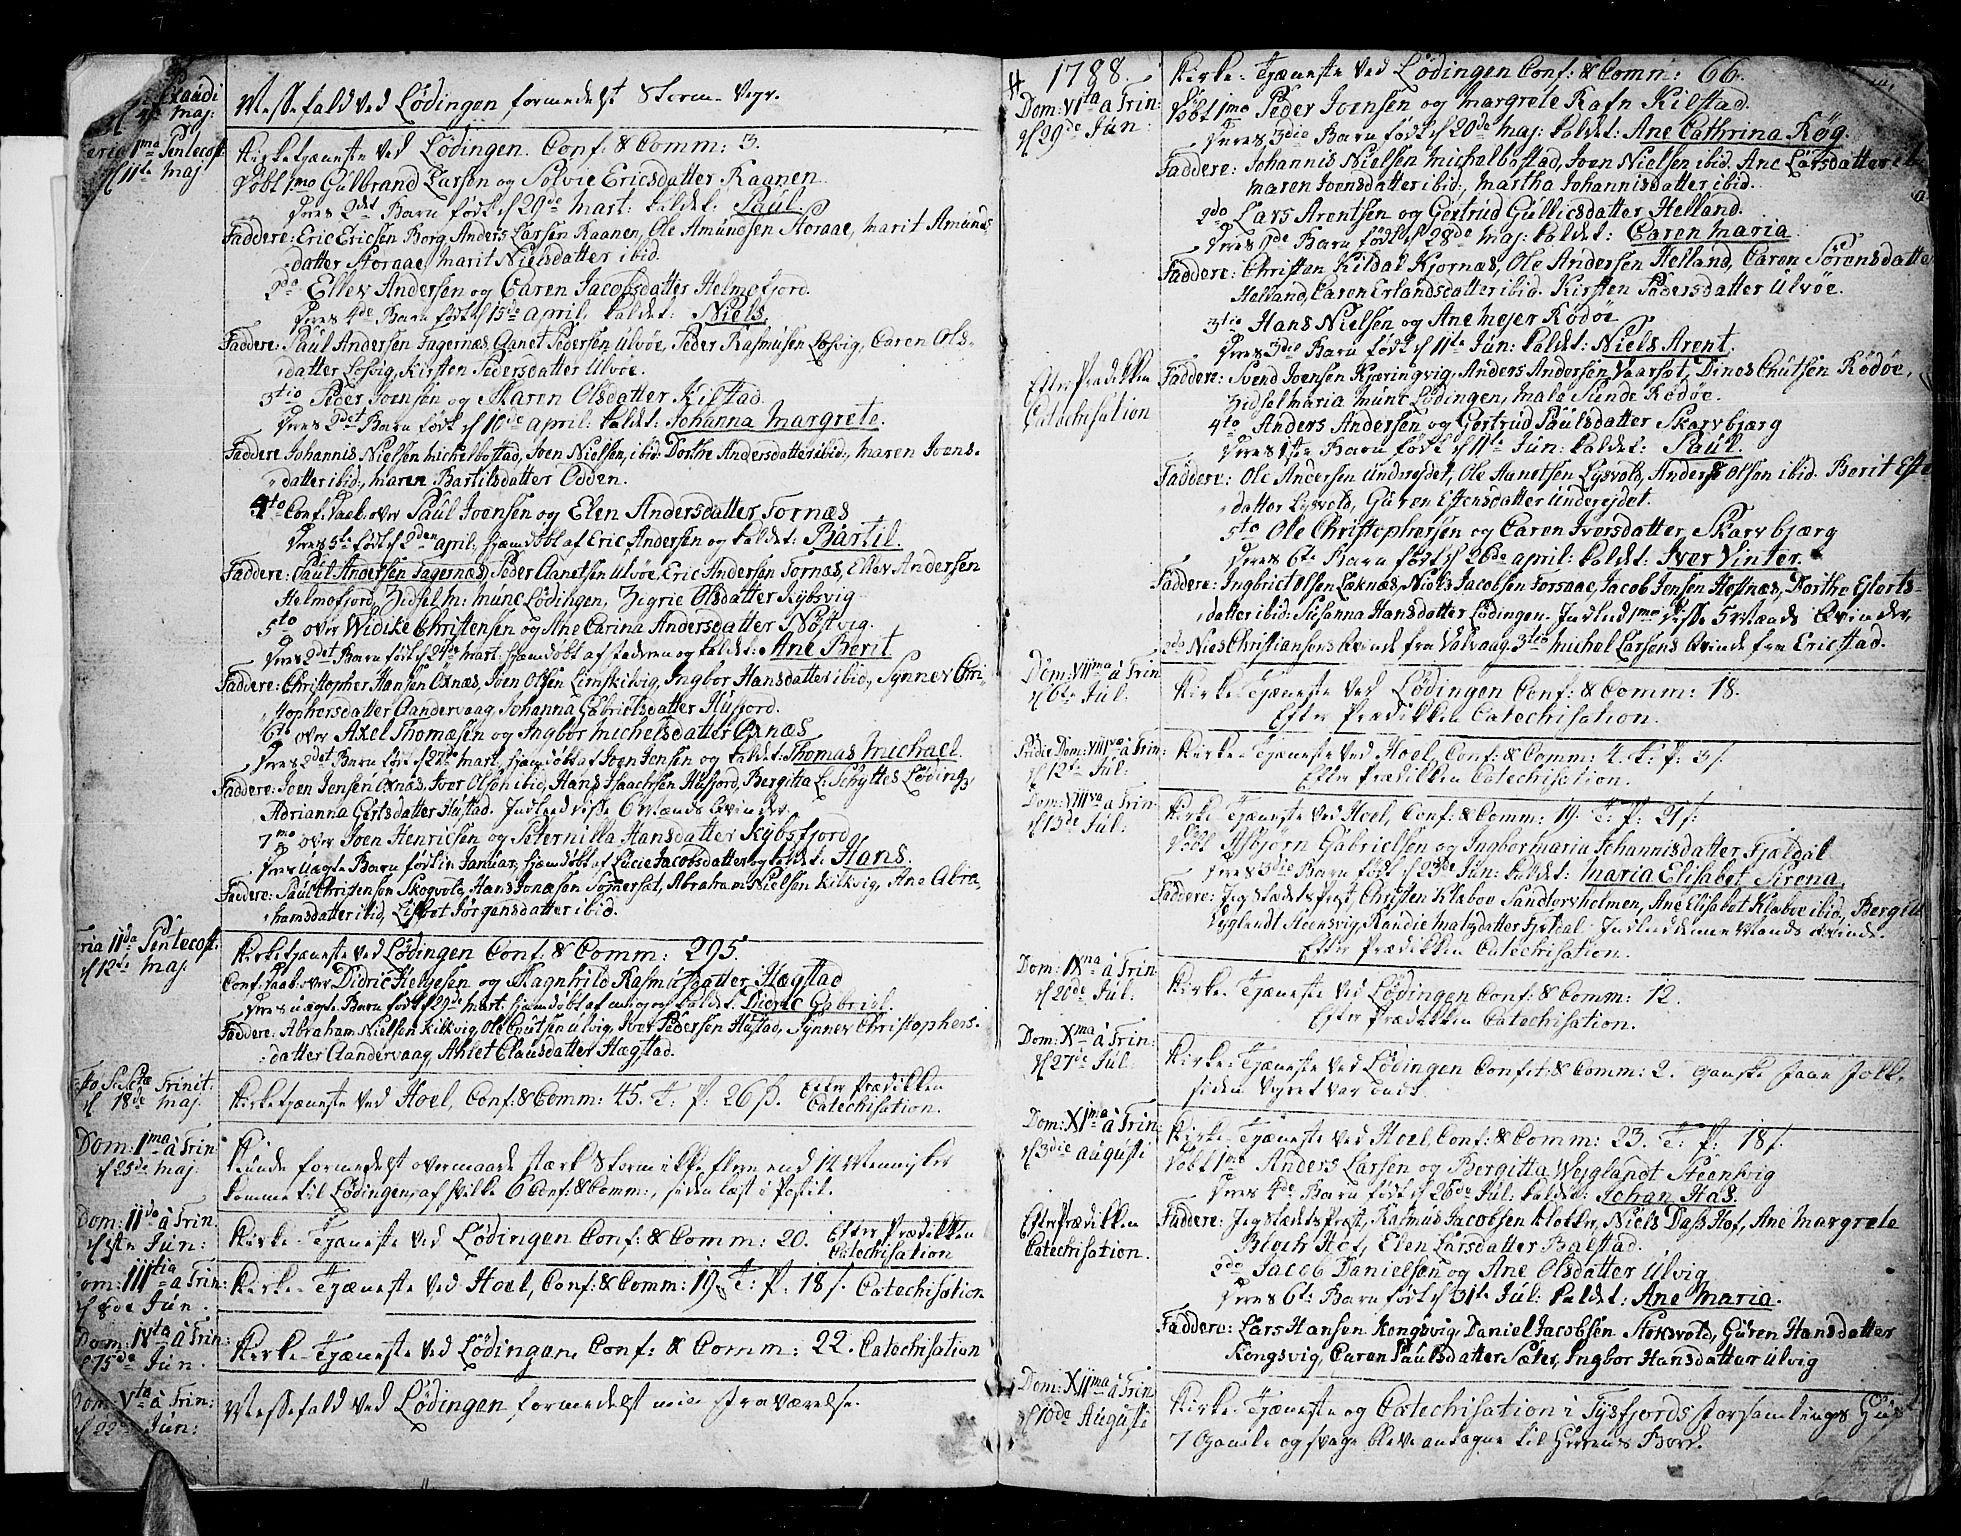 Exaudi
Maj:
Messefald ved Lødingen formedelst Storm-Vejr.
Feria 1ma Pentecost:
d 11te Maj
Kirketjæneste ved Lødingen. Conf: & Comm: 3.
Døbt 1mo Gulbrand Larsen og Solvie Ericsdatter Raanen
Deres 2det Barn født d 29de Mart: kaldet: Paul.
Faddere: Eric Ericsen Borg, Anders Larsen Raanen, Ole Amundsen Storaae, Marit Amunds
datter Storaae, Marit Nielsdatter ibid.
2do Ellev Andersen og Caren Jacobsdatter Helmofjord.
Deres 4de Barn født d 15de April, kaldet: Niels.
Faddere: Paul Andersen Fagernæs, Aanet Pedersen Ulvøe, Peder Rasmusen Losvig, Caren Ols-
datter Losvig, Kirsten Pedersdatter Ulvøe.
3tio Peder Joensen og Maren Olsdatter Kilstad.
Deres 2det Barn født d 10de April: kaldet: Johanna Margrete.
Faddere Johannis Nielsen Michelbostad, Joen Nielsen, ibid: Dorthe Andersdatter ibid:, Maren Joens-
datter ibid:, Maren Bartilsdatter Odden.
4to Conf. Daab. over Paul Joensen og Elen Andersdatter Tornæs
Deres 5te født d 2den April, hjemdøbt af Eric Andersen og kaldet: Bartil.
Faddere: Paul Andersen Fagernæs, Peder Aanetsen Ulvøe, Eric Andersen Tornæs, Ellev Andersen
Helmofjord, Zidsel M: Munc Lødingen, Zegrie Olsdatter Kybsvig
5to over Widike Christensen og Ane Carina Andersdatter Nøstvig.
Deres 2det Barn født d 24de Mart. hjemdøbt af Faderen og kaldet: Ane Berit
Faddere: Christopher Hansen Oxnæs, Joen Olsen Limskilvig, Ingbor Hansdatter ibid., Synnev Chri-
stophersdatter Aandervaag, Johanna Gabrielsdatter Husjord.
6to over Axel Thomæsen og Ingbor Michelsdatter Oxnæs
Deres 2det Barn født d 2den Mart, hjemdøbt af Joen Jensen og kaldet: Thomas Michael.
Faddere: Joen Jensen Oxnæs, Iver Olsen ibid, Hans Isaachsen Husjord, Bergitta L: Schyttes Løding,
Adrianna Gertsdatter Hustad. Indled disse 6 Mænds Qvinder.
7mo over Joen Henricsen og Peternilla Hansdatter Kybsfjord
Deres uægte Barn født in Januar, hjemdøbt af Lucie Jacobsdatter og kaldet: Hans.
Faddere: Paul Christensen Skogvold, Hans Jonæsen Somerset, Abraham Nielsen Kilkvig, Ane Abra-
hamsdatter ibid, Lisbet Jørgensdatter ibid.
Feria IIda Pentecost:
d 12te Maj:
Kirketjæneste ved Lødingen Conf: & Comm: 295.
Conf: Daab: over Didric Helgesen og Magnhild Rasmusdatter Hægstad
Deres uægte Barn født d 29de Mart, hjemdøbt af og kaldet: Didric Gabriel.
Faddere: Abraham Nielsen Kilkvig, Ole Cnutsen Ulvig, Iver Pedersen Hustad, Synnev Christophers-
datter Aandervaag, Ahlet Clausdatter Hægstad.
Trinit:
d 18de Maj
Kirketjæneste ved Hoel, Conf: & Comm: 45. T: P: 26 s. Efter Prædikken
Catechisation.
Dom: 1ma a Trin
d 25de Maj:
Kunde formedelst overmaade stærk Storm ikke flere end 14 Mennisker
komme til Lødingen, af hvilke 6 Conf: & Comm:, siden læst i Postil.
Dom: IIda a Trin.
d 1ste Jun:
Kirke-Tjæneste ved Lødingen Conf: & Comm: 20. Efter Prædikken
Catechisation
Dom: IIItia a Trin:
d 8de Jun.
Kirke-Tjæneste ved Hoel, Conf: & Comm: 19, T: P: 18 s. Catechisation
Dom: IVta a Trin:
d 15de Jun.
Kirke-Tjæneste ved Lødingen, Conf: & Comm: 22. Catechisation
Dom: Vta a Trin:
d 22de Jun:
Messefald ved Lødingen formedelst min Fraværelse.
1788.
Dom: VIta a Trin:
d 29de Jun:
Kirke-Tjæneste ved Lødingen Conf: & Comm: 66.
Døbt 1mo Peder Joensen og Margrete Rafn Kilstad.
Deres 3die Barn født d 20de Maj: kaldet: Ane Cathrina Røg.
Faddere: Johannis Nielsen Michelbostad, Joen Nielsen ibid. Ane Larsdatter
Maren Joensdatter ibid:, Martha Johannisdatter ibid.
2do Lars Arentsen og Gertrud Gullicsdatter Helland.
Deres Barn født d 28de Maj: kaldet: Caren Maria.
Faddere: Christen Kildal Kjornæs, Ole Andersen Helland, Caren Sørensdatter
Helland, Caren Erlandsdatter ibid. Kirsten Pedersdatter Ulvøe.
3tio Hans Nielsen og Ane Mejer Rødøe
Deres 3die Barn født d 11te Jun: kaldet: Niels Arent.
Efter Prædikken
Catechisation
Faddere: Svend Joensen Kjæringvig, Anders Andersen Vaarsæt, Dines Cnutsen Rødøe,
Zidsel Maria Munc Lødingen, Male Sunde Rødøe.
4to Anders Andersen og Gertrud Paulsdatter Skarvbjærg
Deres 1ste Barn født d 11te Jun: kaldet: Paul.
Faddere: Ole Andersen Undrejdet, Ole Aanetsen Lysvold, Anders Olsen ibid. Berit
datter Lysvold, Guren Effensdatter Underejdet.
5to Ole Christophersen og Caren Iversdatter Skarvbjærg
Deres 6te Barn født d 26de April: kaldet: Iver Vinter.
Faddere: Ingbrict Olsen Læknæs, Niels Jacobsen Forsaae, Jacob Jensen Hestnæs, Dorthe Elerts-
datter ibid. Susanna Hansdatter Lødingen. Indled 1mo disse 5 Mænds Qvinder,
2do Niels Christiansens Qvinde fra Valvaag. 3tio Michel Larsens Qvinde fra Ericstad.
Dom: VIIma a Trin
d 6te Jul:
Kirke-Tjæneste ved Lødingen Conf: & Comm: 18.
Efter Prædikken Catechisation.
Pridie Dom: VIIIvæ a Trin:
d 12te Jul:
Kirke-Tjæneste ved Hoel, Conf: & Comm: 4. T: P: 3 s.
Efter Prædikken Catechisation.
Dom: VIIIva a Trin:
d 13de Jul:
Kirke-Tjæneste ved Hoel, Conf: & Comm: 19. T: P: 21 s:
Døbt Asbjørn Gabrielsen og Ingbor Maria Johannisdatter Fjældal
Deres 3die Barn født d 23de Jun: kaldet: Maria Elisabet Sirena.
Faddere: Jeg Stædets Præst, Christen Klaboe Sandtorsholmen, Ane Elisabet Klaboe ibid., Bergitte
Wyglandt Steensvig, Randie Matzdatter Fjeldal. Indled denne Mands Qvinde.
Efter Prædikken Catechisation.
Dom: IXna a Trin:
d 20de Jul:
Kirke-Tjæneste ved Lødingen Conf: & Comm: 12.
Efter Prædikken Catechisation.
Dom: Xma a Trin:
d 27de Jul:
Kirke-Tjæneste ved Lødingen Conf: & Comm: 2. Ganske faae Folk
siden Vejret var ondt.
Dom: XIma a Trin:
d 3die Auguste
Kirke-Tjæneste ved Hoel, Conf: & Comm: 23. T: P: 18 s.
Døbt 1mo Anders Larsen og Bergitta Wejglandt Steensvig
Deres 4de Barn født d 26de Jul: kaldet: Johan Has.
Efter Prædikken
Catechisation.
Faddere: Jeg Stædets Præst, Rasmus Jacobsen Klokker, Niels Dass Hof, Ane Margrete
Bloch Hof, Elen Larsdatter Balstad.
2do Jacob Danielsen og Ane Olsdatter Ulvig
Deres 6te Barn født d 31te Jul: kaldet: Ane Maria.
Faddere: Lars Hansen Kongsvig, Daniel Jacobsen Stoksvold, Guren Hansdatter
Kongsvig, Caren Paulsdatter Sæter, Ingbor Hansdatter Ulvig
Dom: XIIma a Trin:
d 10de Auguste
Kirke-Tjæneste og Catechisation i Tysfjords Forsamlings Huus
7 Gamle og svage bleve antagne til Herrens Bord.